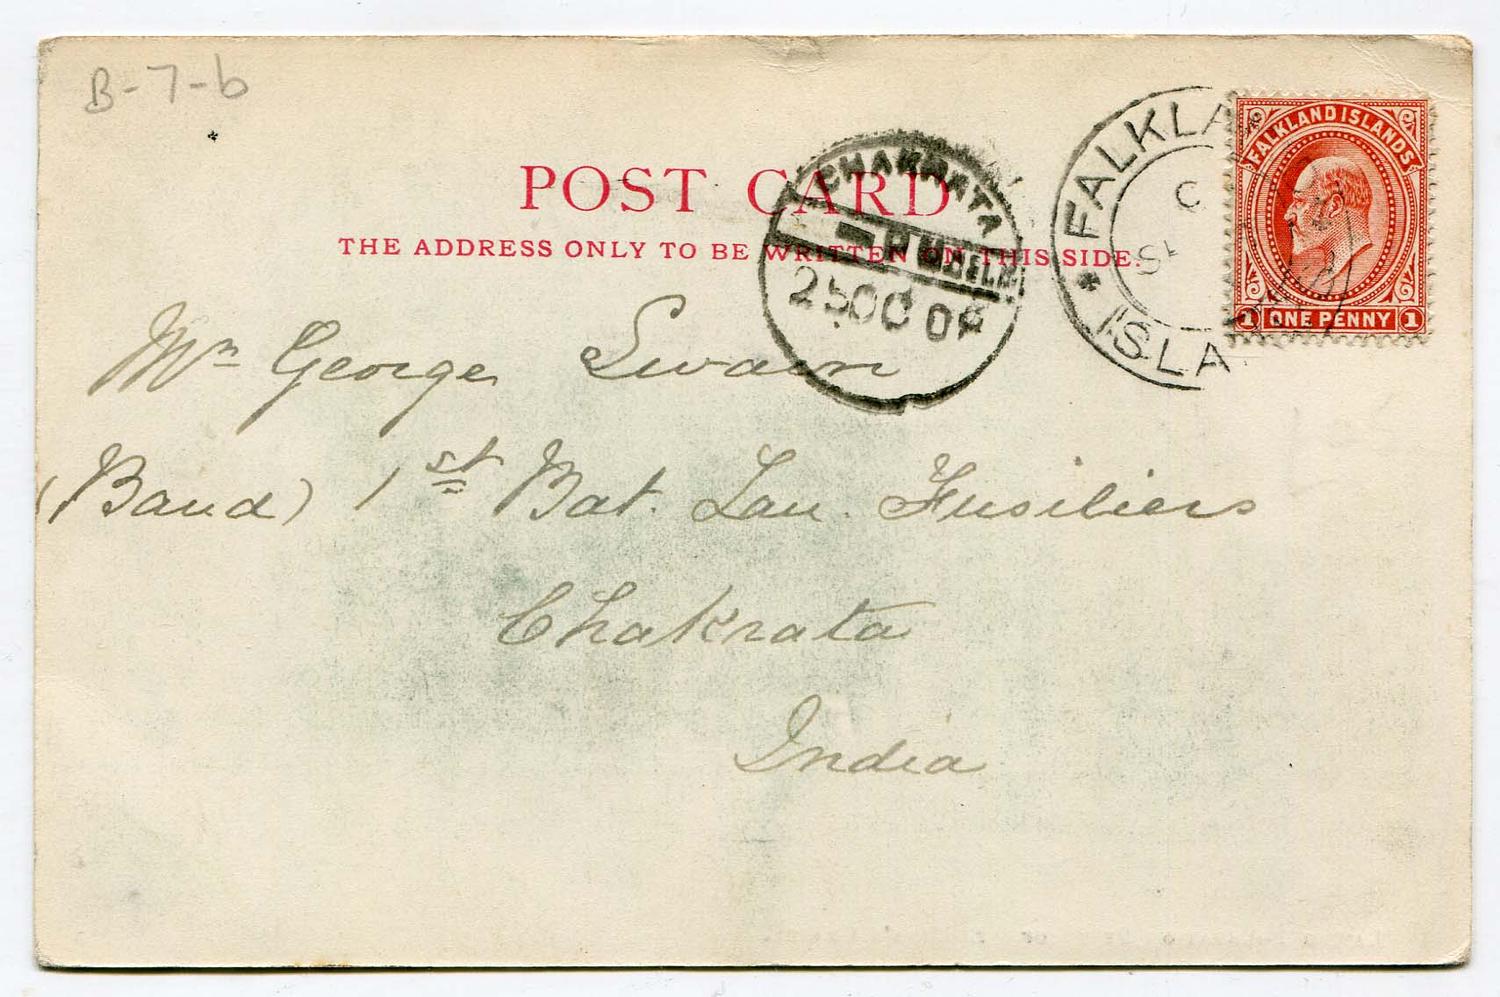 B-7-b
POST CARD
THE ADDRESS ONLY TO BE WRITTEN ON THIS SIDE.
CHAKRATA
25 OC 04
FALKLA
ISLA
FALKLAND ISLANDS
1 ONE PENNY 1
Mr George Swain
(Band) 1st Bat. Lan. Fusiliers
Chakrata
India